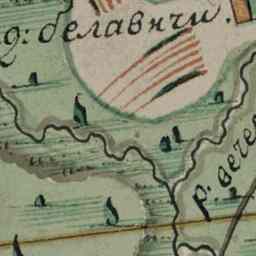 д: белавичи.
р. вече